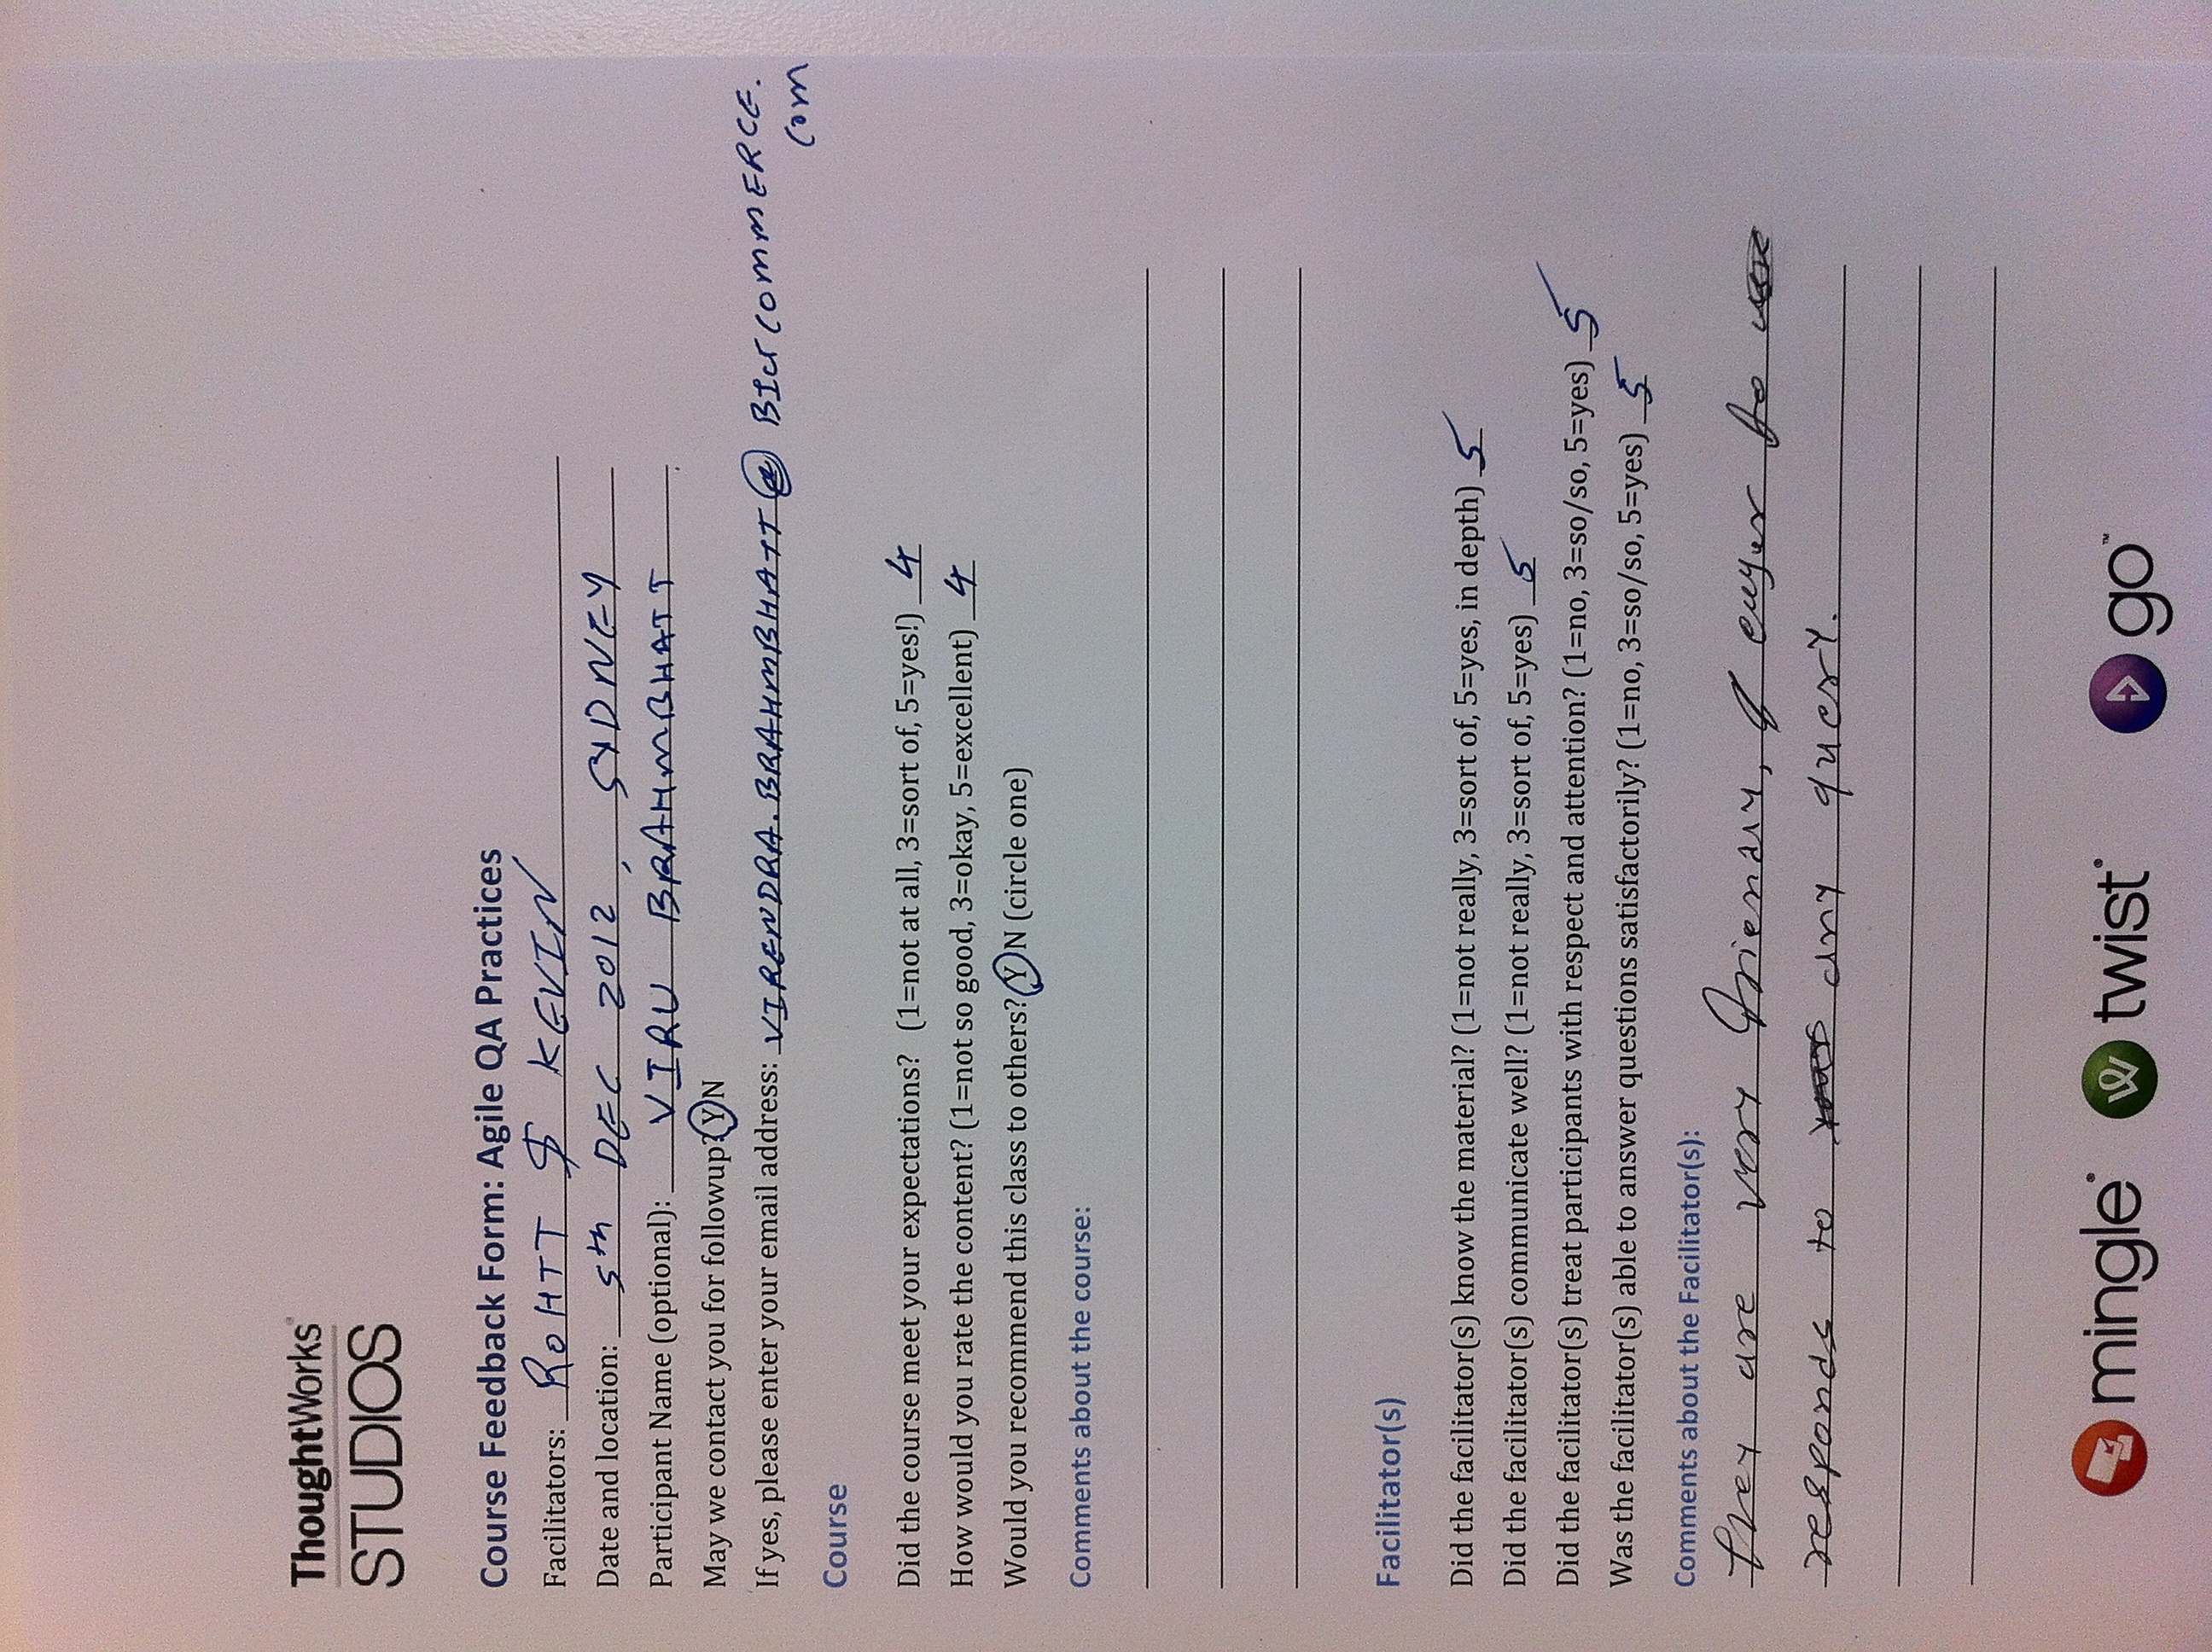 ThoughtWorks®
STUDIOS
Course Feedback Form: Agile QA Practices
Facilitators: ROHIT & KEVIN
Date and location: 5th DEC 2012, SYDNEY
Participant Name (optional): VIRU BRAHMBHATT
May we contact you for followup? Y N
If yes, please enter your email address: VIRENDRA.BRAHMBHATT@BIGCOMMERCE.
COM
Course
Did the course meet your expectations? (1=not at all, 3=sort of, 5=yes!) 4
How would you rate the content? (1=not so good, 3=okay, 5=excellent) 4
Would you recommend this class to others? Y N (circle one)
Comments about the course:
Facilitator(s)
Did the facilitator(s) know the material? (1=not really, 3=sort of, 5=yes, in depth) 5
Did the facilitator(s) communicate well? (1=not really, 3=sort of, 5=yes) 5
Did the facilitator(s) treat participants with respect and attention? (1=no, 3=so/so, 5=yes) 5
Was the facilitator(s) able to answer questions satisfactorily? (1=no, 3=so/so, 5=yes) 5
Comments about the Facilitator(s):
They are very friendly, & eager to
responds to any query.
mingle® twist® go™